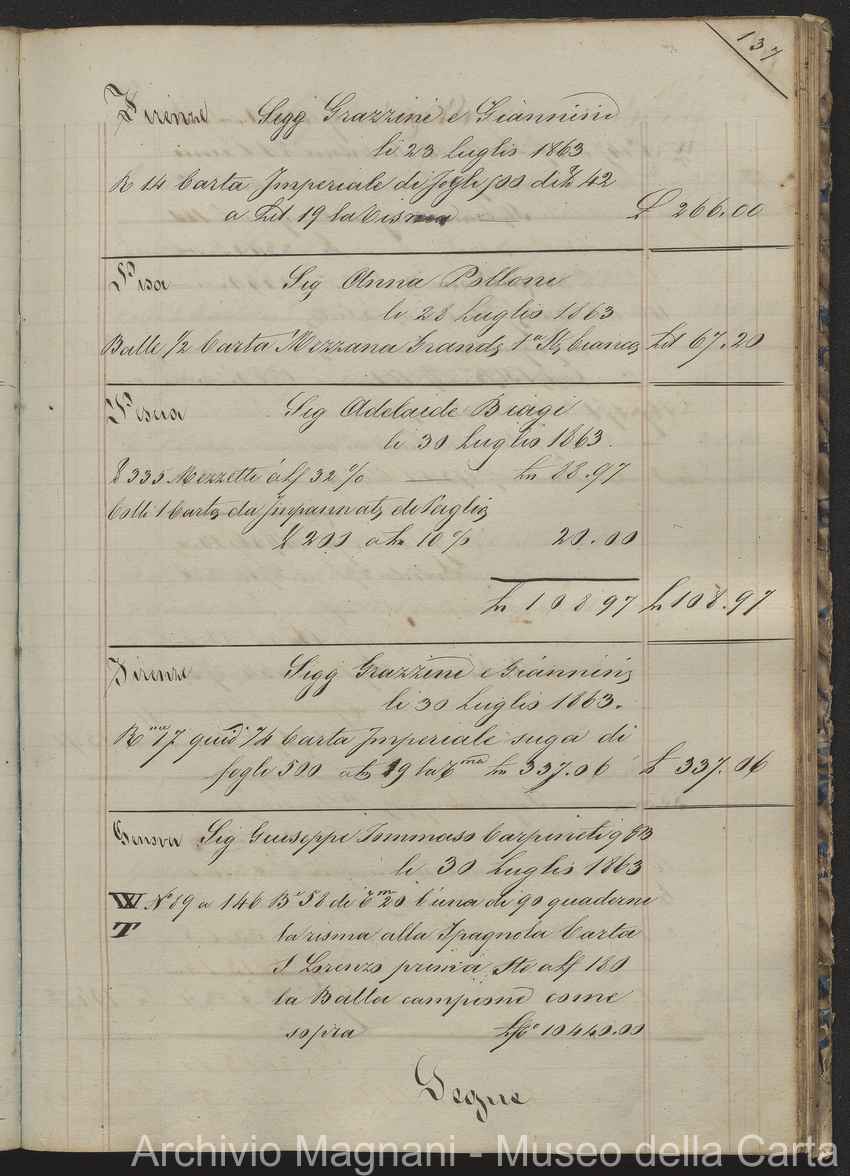 137
Firenze Sigg Grazzini e Giannini
li 23 Luglio 1863
R 14 Carta Imperiale di fogli 500 di 42
a Lit 19 la Risma £ 266.00
Pisa Sig Anna Polloni
li 28 Luglio 1863
Balle 1/2 Carta Mezzana Grande 1a Bianca Lit 67.20
Pescia Sig Adelaide Biagi
li 30 Luglio 1863.
335 Mezzette a 32 % — Ln 88.97
Colli 1 Carta da Impannate di Paglia
200 a Ln 10 % 20.00
Ln 108 97 Ln 108.97
Firenze Sigg Grazzini e Giannini
li 30 Luglio 1863.
Rme 17 quid 14 Carta Imperiale suga di
fogli 500 a Ln 19 la Rma Ln 337.06 £ 337.06
Genova Sig Giuseppe Tommaso Carpineti q GB
li 30 Luglio 1863
W No 89 a 146 Be 58 di rme 20 l'una di 90 quaderni
T la risma alla Spagnola Carta
S Lorenzo prima a 180
la Balla campione come
sopra 10440.00
Segue
Archivio Magnani - Museo della Carta